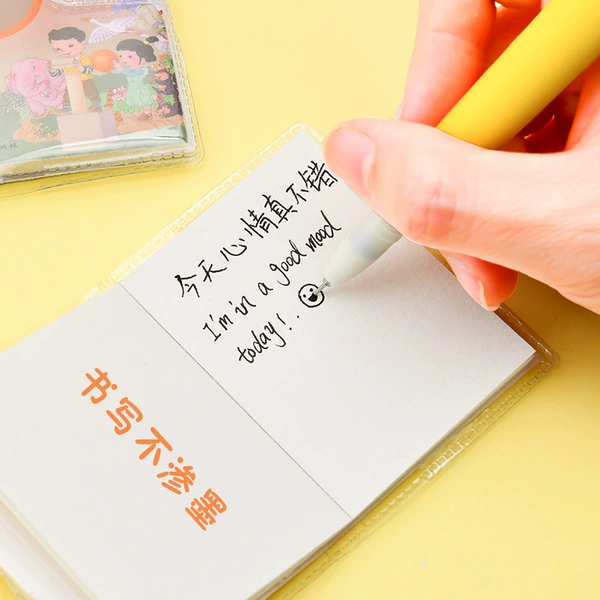 今天心情真不错
I'm in a good mood
today!
书写不渗墨